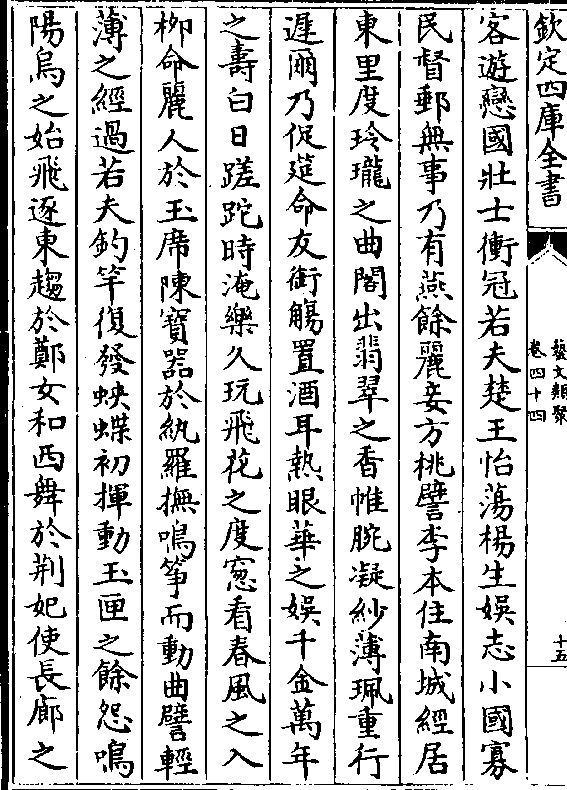 欽定四庫全書
藝文類聚
卷四十四
十五
客遊戀國壯士衝冠若夫楚王怡蕩楊生娛志小國寡
民督郵無事乃有燕餘麗妾方桃譬李本住南城經居
東里度玲瓏之曲閣出翡翠之香帷腕凝紗薄珮重行
遲爾乃促筵命友銜觴置酒耳熱眼華之娛千金萬年
之壽白日蹉跎時淹樂久玩飛花之度窻看春風之入
柳命麗人於玉席陳寶器於紈羅撫鳴箏而動曲譬輕
薄之經過若夫釣竿復發蛺蝶初揮動玉匣之餘怨鳴
陽烏之始飛逐東趨於鄭女和西舞於荆妃使長廊之